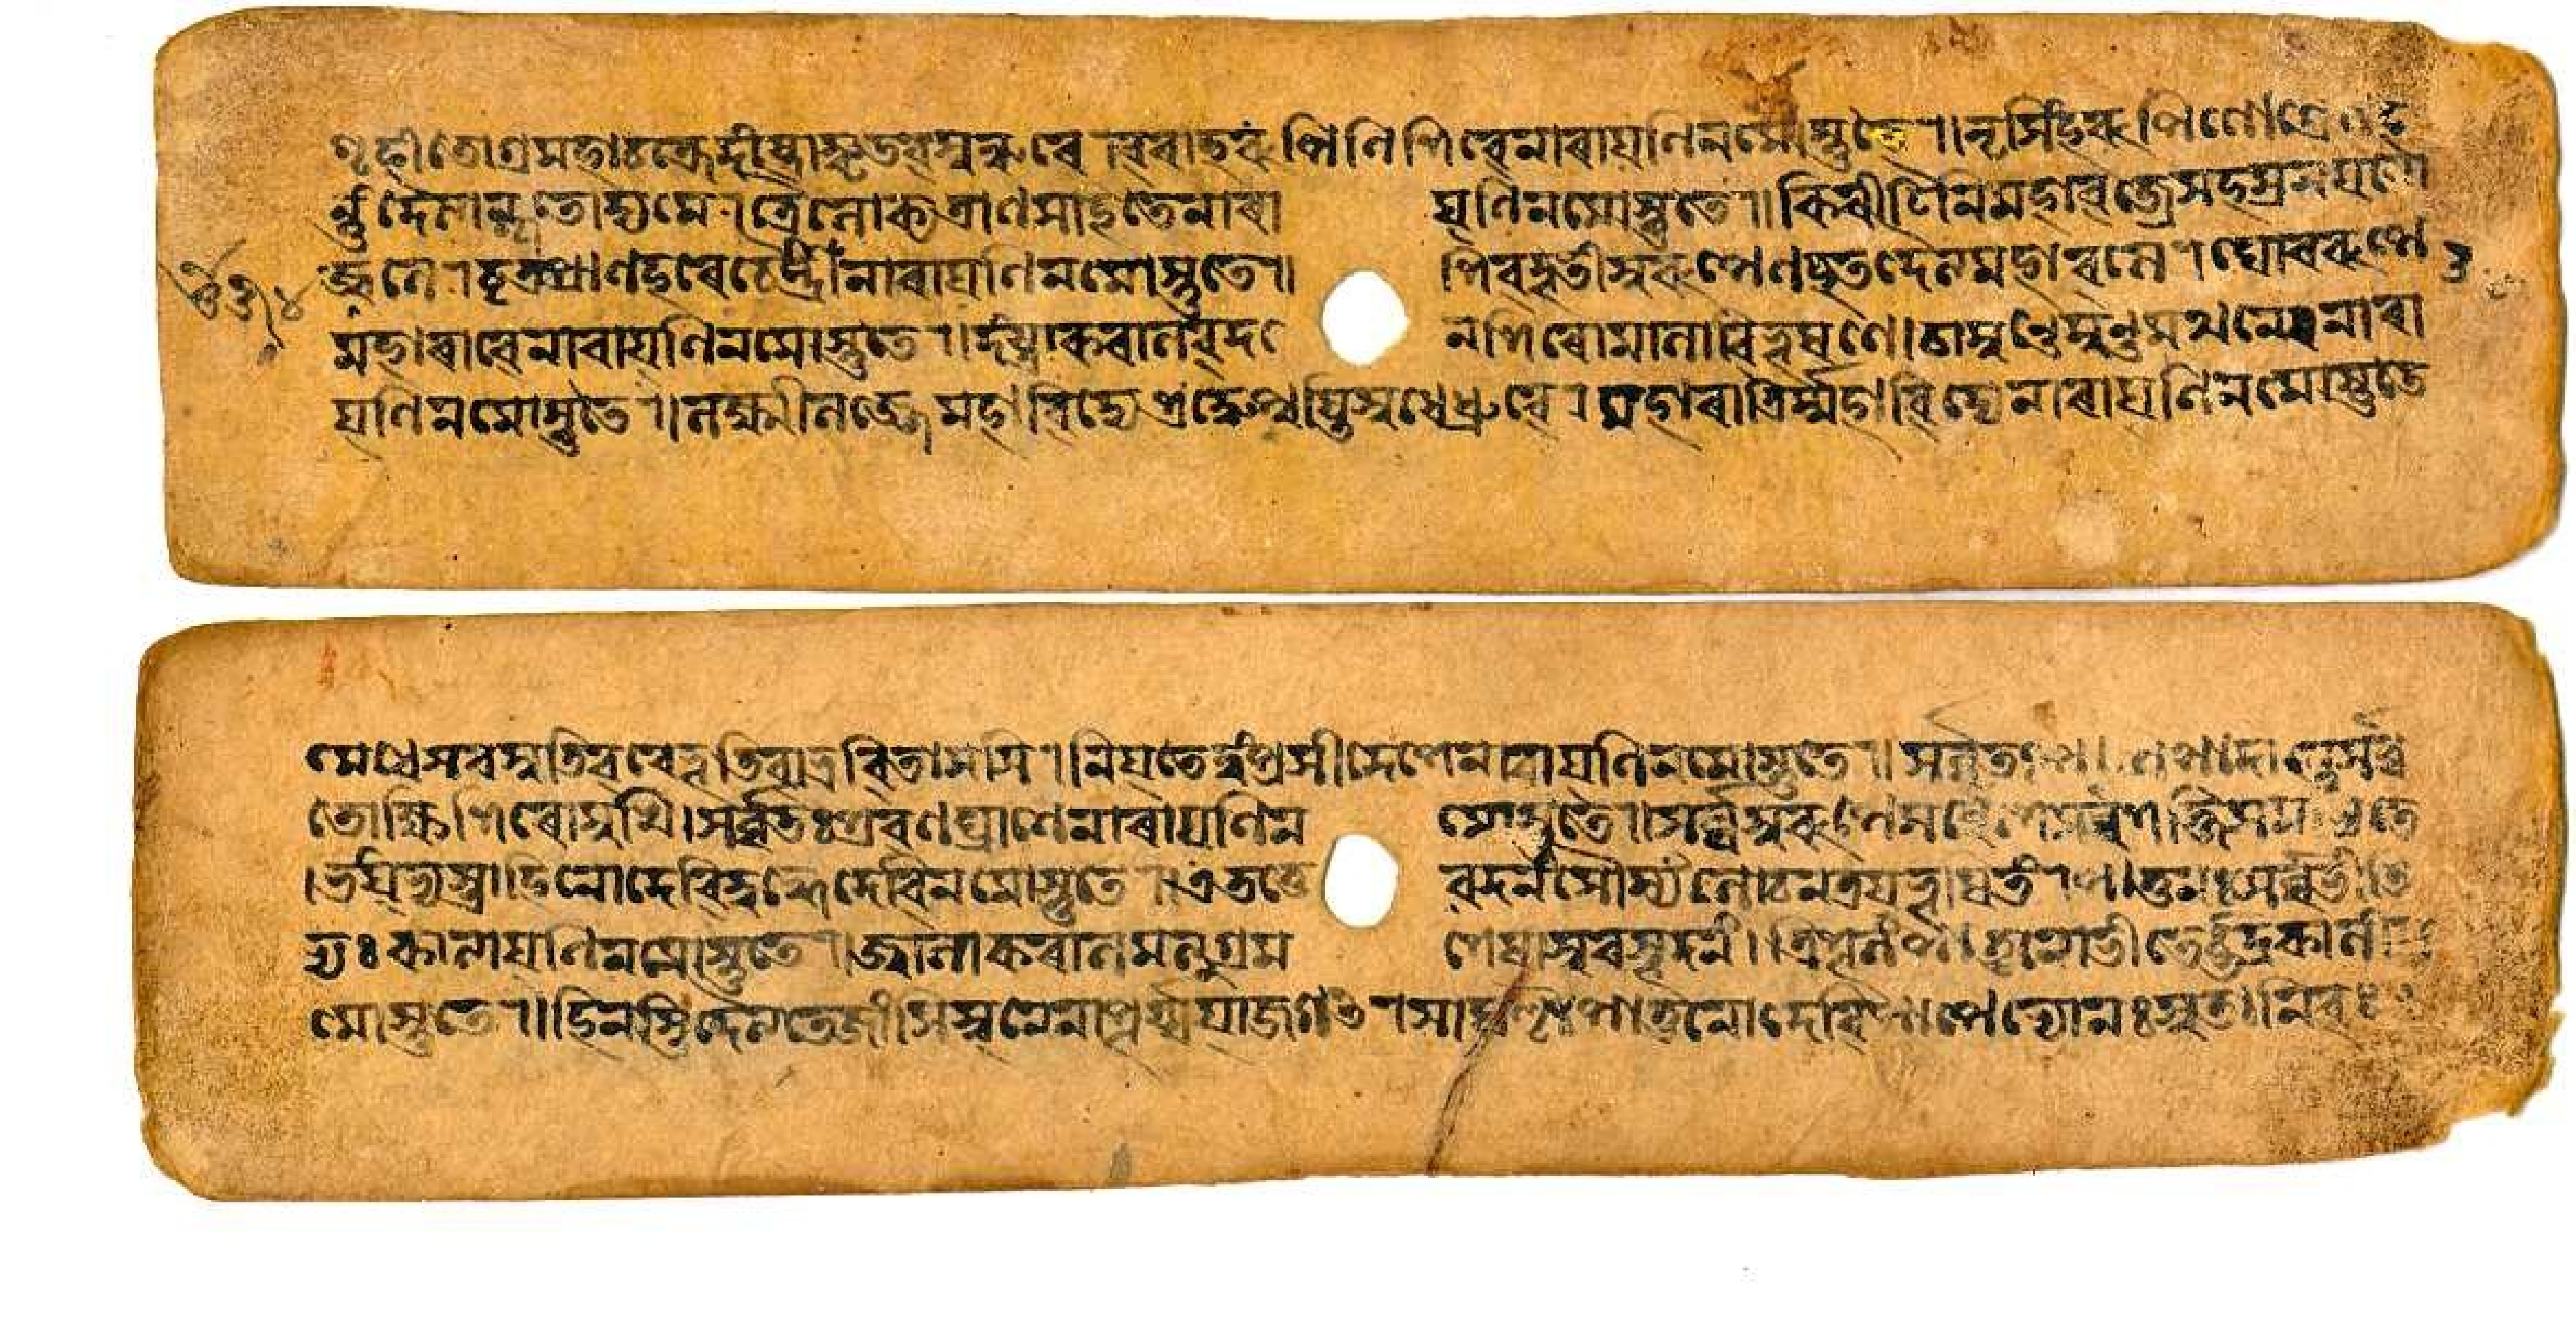 গৃহীতোগ্রমহাচক্রেদংষ্ট্রোদ্ধৃতবসুন্ধৰে।বৰাহৰূপিণিশিবেনাৰায়ণিনমোস্তুতে॥নৃসিংহৰূপেণোগ্রেণহ
ন্তুংদৈত্যান্কৃতোদ্যমে।ত্রৈলোক্যত্রাণসহিতেনাৰা য়ণিনমোস্তুতে॥কিৰীটিনিমহাবজ্রেসহস্রনয়নো
জ্জ্বলে।বৃত্রপ্রাণহৰেচৈন্দ্রিনাৰায়ণিনমোস্তুতে॥ শিবদূতীস্বৰূপেণহতদৈত্যমহাবলে।ঘোৰৰূপে
মহাৰাবেনাৰায়ণিনমোস্তুতে॥দংষ্ট্রাকৰালবদ নেশিৰোমালাবিভূষণে।চামুণ্ডেমুণ্ডমথনেনাৰা
য়ণিনমোস্তুতে॥লক্ষ্মীলজ্জেমহাবিদ্যেশ্রদ্ধেপুষ্টিস্বধেধ্রুবে।মহাৰাত্রির্ম্মহাবিদ্যেনাৰায়ণিনমোস্তুতে
মেধেসৰস্বতিবৰেভূতিবাভ্রবিতামসি।নিয়তেত্বংপ্রসীদেশেনাৰায়ণিনমোস্তুতে॥সর্ব্বতঃপাণিপাদান্তেসর্ব্ব
তোক্ষিশিৰোমুখি।সর্ব্বতঃশ্রবণঘ্রাণেনাৰায়ণিন মোস্তুতে॥সর্ব্বস্বৰূপেসর্ব্বেশেসর্ব্বশক্তিসমন্বিতে
।ভয়েভ্যস্ত্রাহিনোদেবিদুর্গেদেবিনমোস্তুতে॥এতত্তে বদনংসৌম্যংলোচনত্রয়ভূষিতং।পাতুনঃসর্ব্বভীতি
ভ্যঃকাত্যায়নিনমোস্তুতে॥জ্বালাকৰালমত্যুগ্রম শেষাসুৰসূদনং।ত্রিশূলংপাতুনোভীতের্ভদ্রকালিন
মোস্তুতে॥হিনস্তিদৈত্যতেজাংসিস্বনেনাপূর্য্যযাজগৎ।সাঘণ্টাপাতুনোদেবিপাপেভ্যোনঃসুতানিব